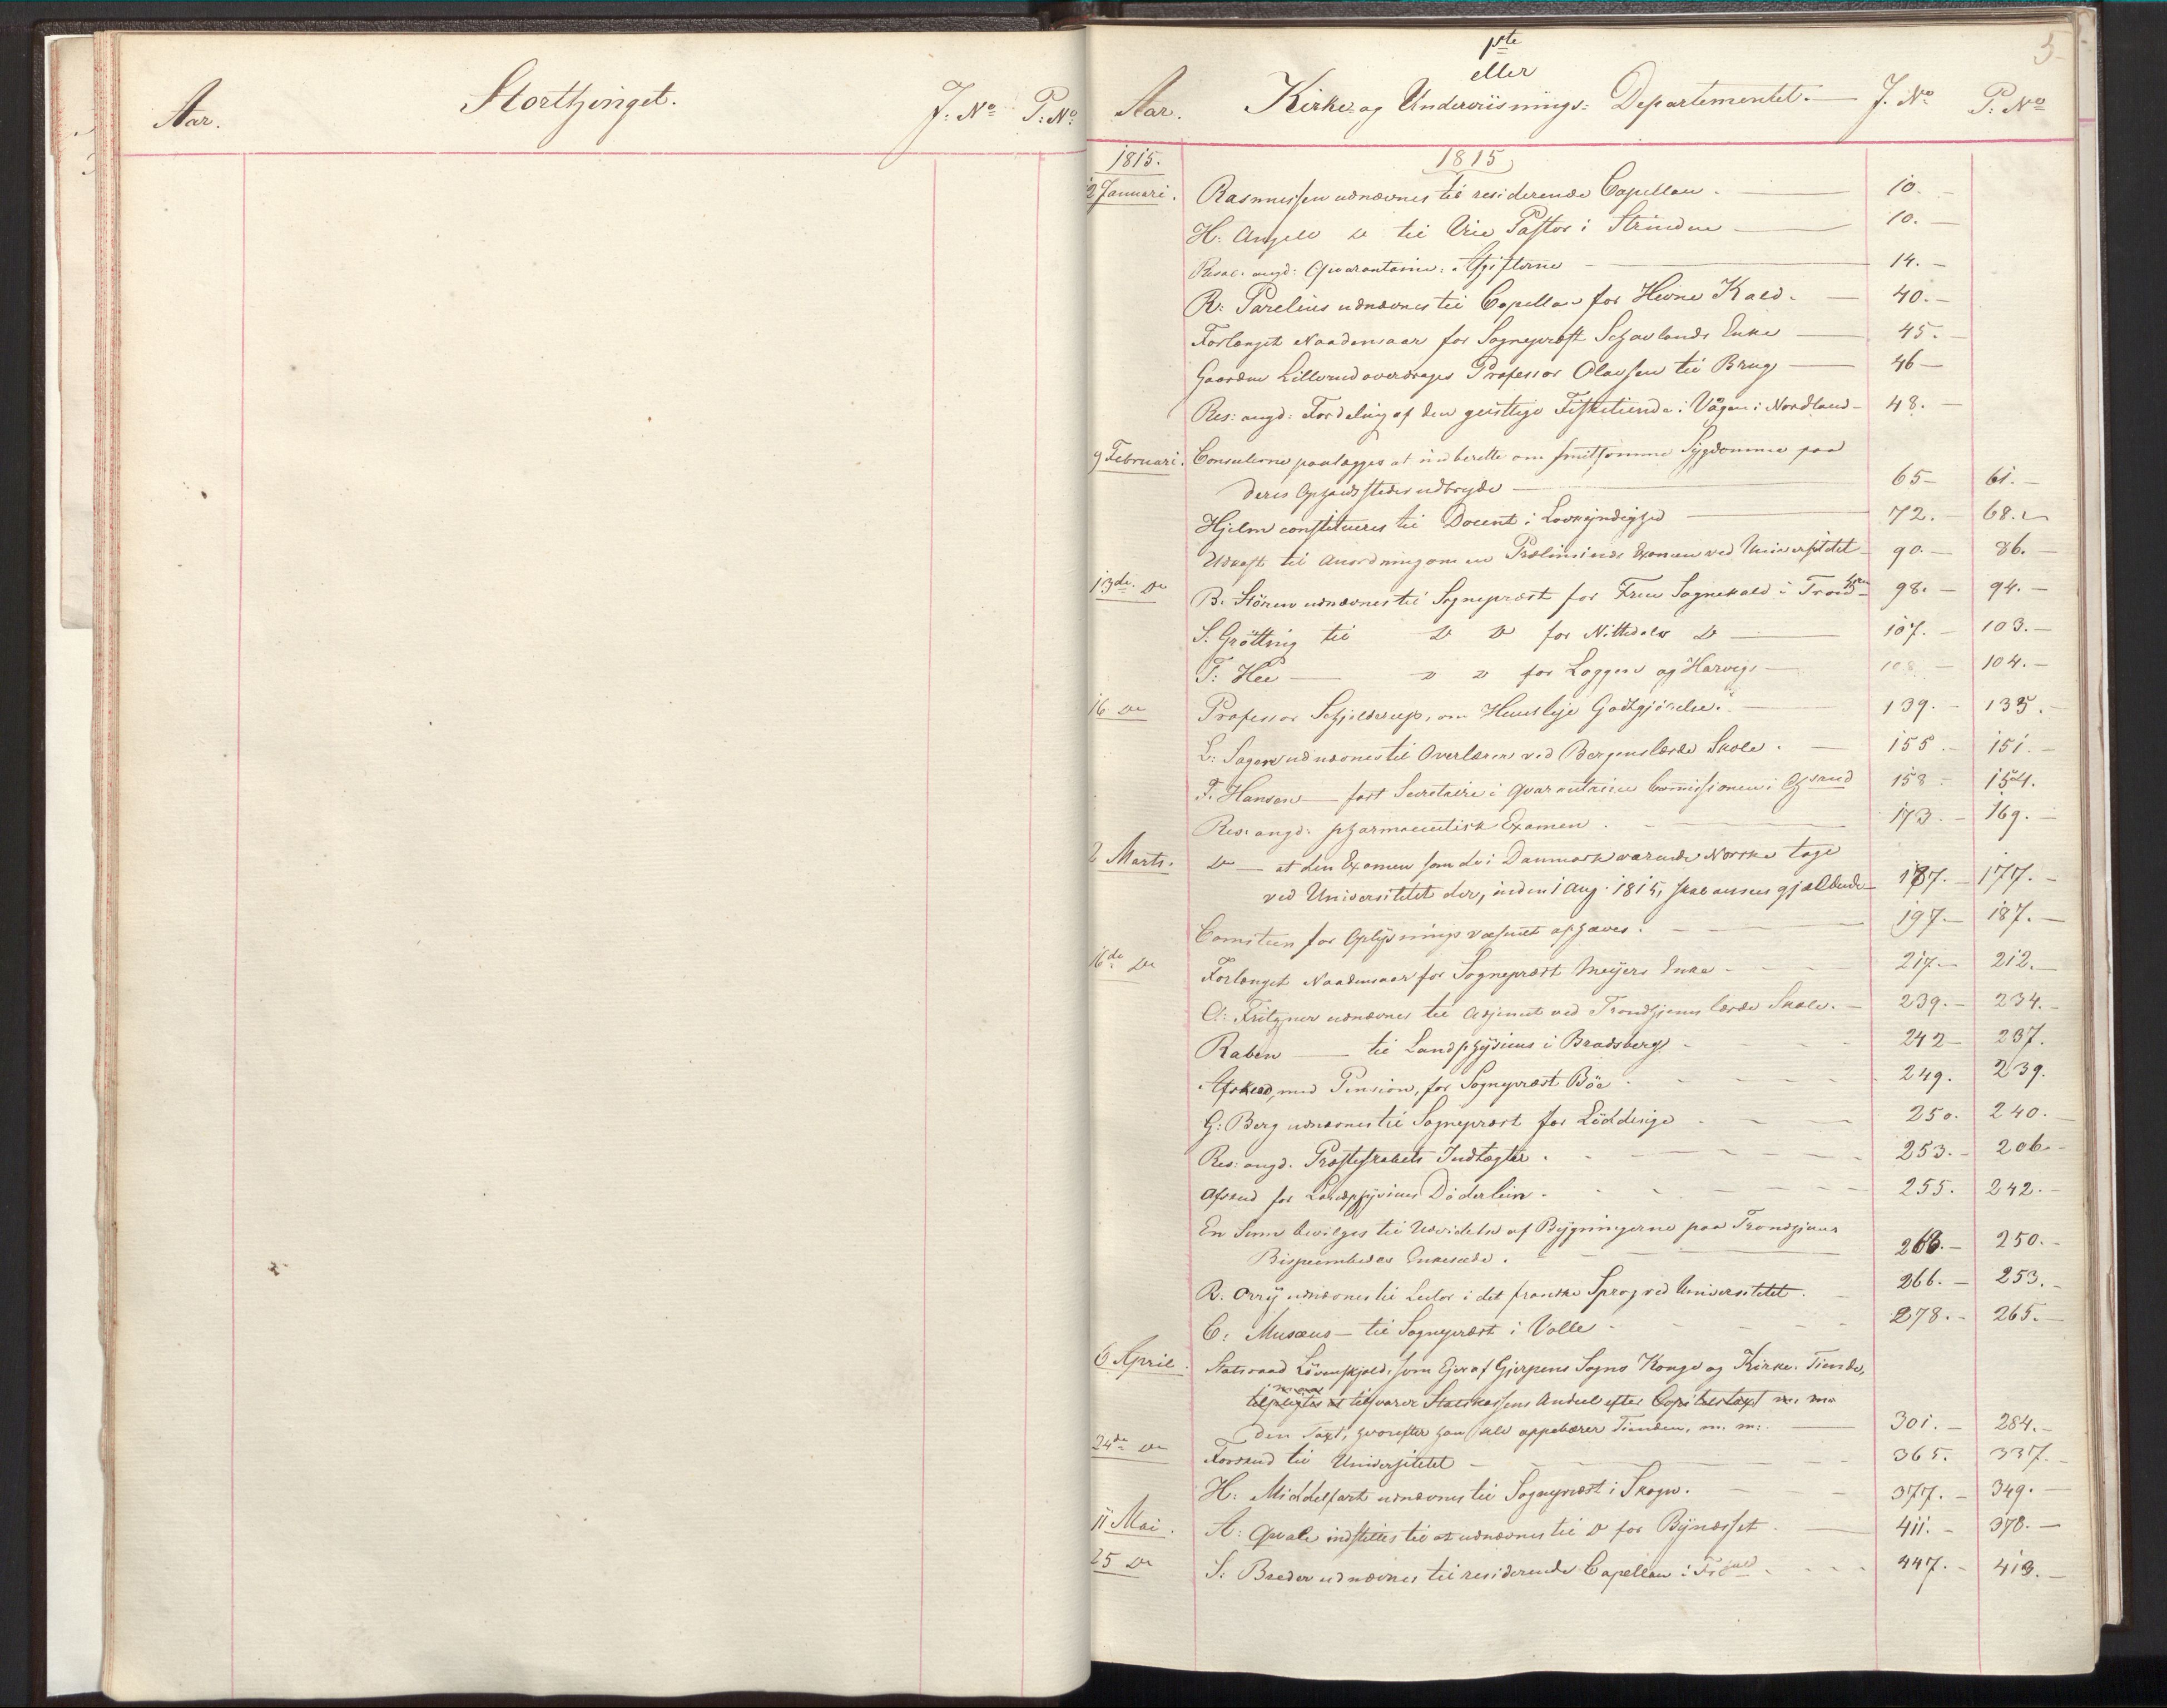 Aar. Storthinget. J. No P: No
5
1ste
eller
Aar. Kirke og Underviisnings-Departementet. J. No P: No
1815. 1815
12 Januari. Rasmussen udnævnes til residerende Capellan. 10.
H: Angell do til Vice Pastor i Strinden 10.
Resol. angd: Quarantaine-Afgifterne 14.
R: Parelius udnævnes til Capellan for Hevne Kald. 40.
Forlænget Naadensaar for Sognepræst Schavlands Enke 45.
Gaarden Lillerud overdrages Professor Olavsen til Brug 46
Res: angd: Fordeling af den geistlige Fisketiende i Vågen i Nordland 48.
9 Februari. Consulerne paalægges at indberette om smitsomme Sygdomme paa
deres Opholdssteder udbryde 65 61.
Hjelm constitueres til Docent i Lovkyndighed 72. 68.
Udkast til Anordning om en Præliminair Examen ved Universitetet 90. 86.
13de do B. Stören udnævnes til Sognepræst for Frue Sognekald i Trondhjem 98. 94.
S. Grötting til do do for Nittedals do 107. 103.
T: Hee do do for Loggen og Harvigs 108 104.
16 do Professor Schjelderup, om Huusleje Godtgjörelse. 139. 135.
L: Sagen udnævnes til Overlærer ved Bergens lærde Skole. 155. 151.
F. Hansen fast Secretaire i Quarantaine Comissionen i Chsand 158 154.
Res: angd. pharmaceutisk Examen. 173. 169.
2 Marts. do at den Examen som de i Danmark værende Norske tage
ved Universitetet der, inden 1 Aug. 1815, skal ansees gjældende 187. 177.
Comiteen for Oplysningsvæsenet ophæves. 197 187.
16de do Forlænget Naadensaar for Sognepræst Meyers Enke 217. 212.
O: Fritzner udnævnes til Adjunct ved Trondhjems lærde Skole. 239. 234.
Raben til Landphysicus i Bradsberg 242 237.
Afsked, med Pension, for Sognepræst Böe 249. 239.
G: Berg udnævnes til Sognepræst for Löddinge 250. 240.
Res: angd. Præsteskabets Indtægter. 253. 206.
Afsked for Landphysicus Döderlein. 255. 242.
En Sum bevilges til Udvidelse af Bygningerne paa Trondhjems
Bispeembedes Enkesæde. 263. 250.
R. Orry udnævnes til Lector i det franske Sprog ved Universitetet. 266. 253.
C: Musæus til Sognepræst i Valle 278. 265.
6 April. Statsraad Lövenskjold, som Ejer af Gjerpens Sogns Konge og Kirke-Tiende,
tilpligtes at tilsvare Statskassens Andeel efter Capitelstaxt m. m.
den Taxt, hvorefter han selv oppebærer Tienden, m. m. 301. 284.
24de do Forskud til Universitetet 365. 337.
H: Middelfart udnævnes til Sognepræst i Skogn. 377. 349.
11 Mai. A: Qvale indstilles til at udnævnes til do for Bynæsset 411. 378.
25 do S: Breder udnævnes til residerende Capellan i 447. 413.